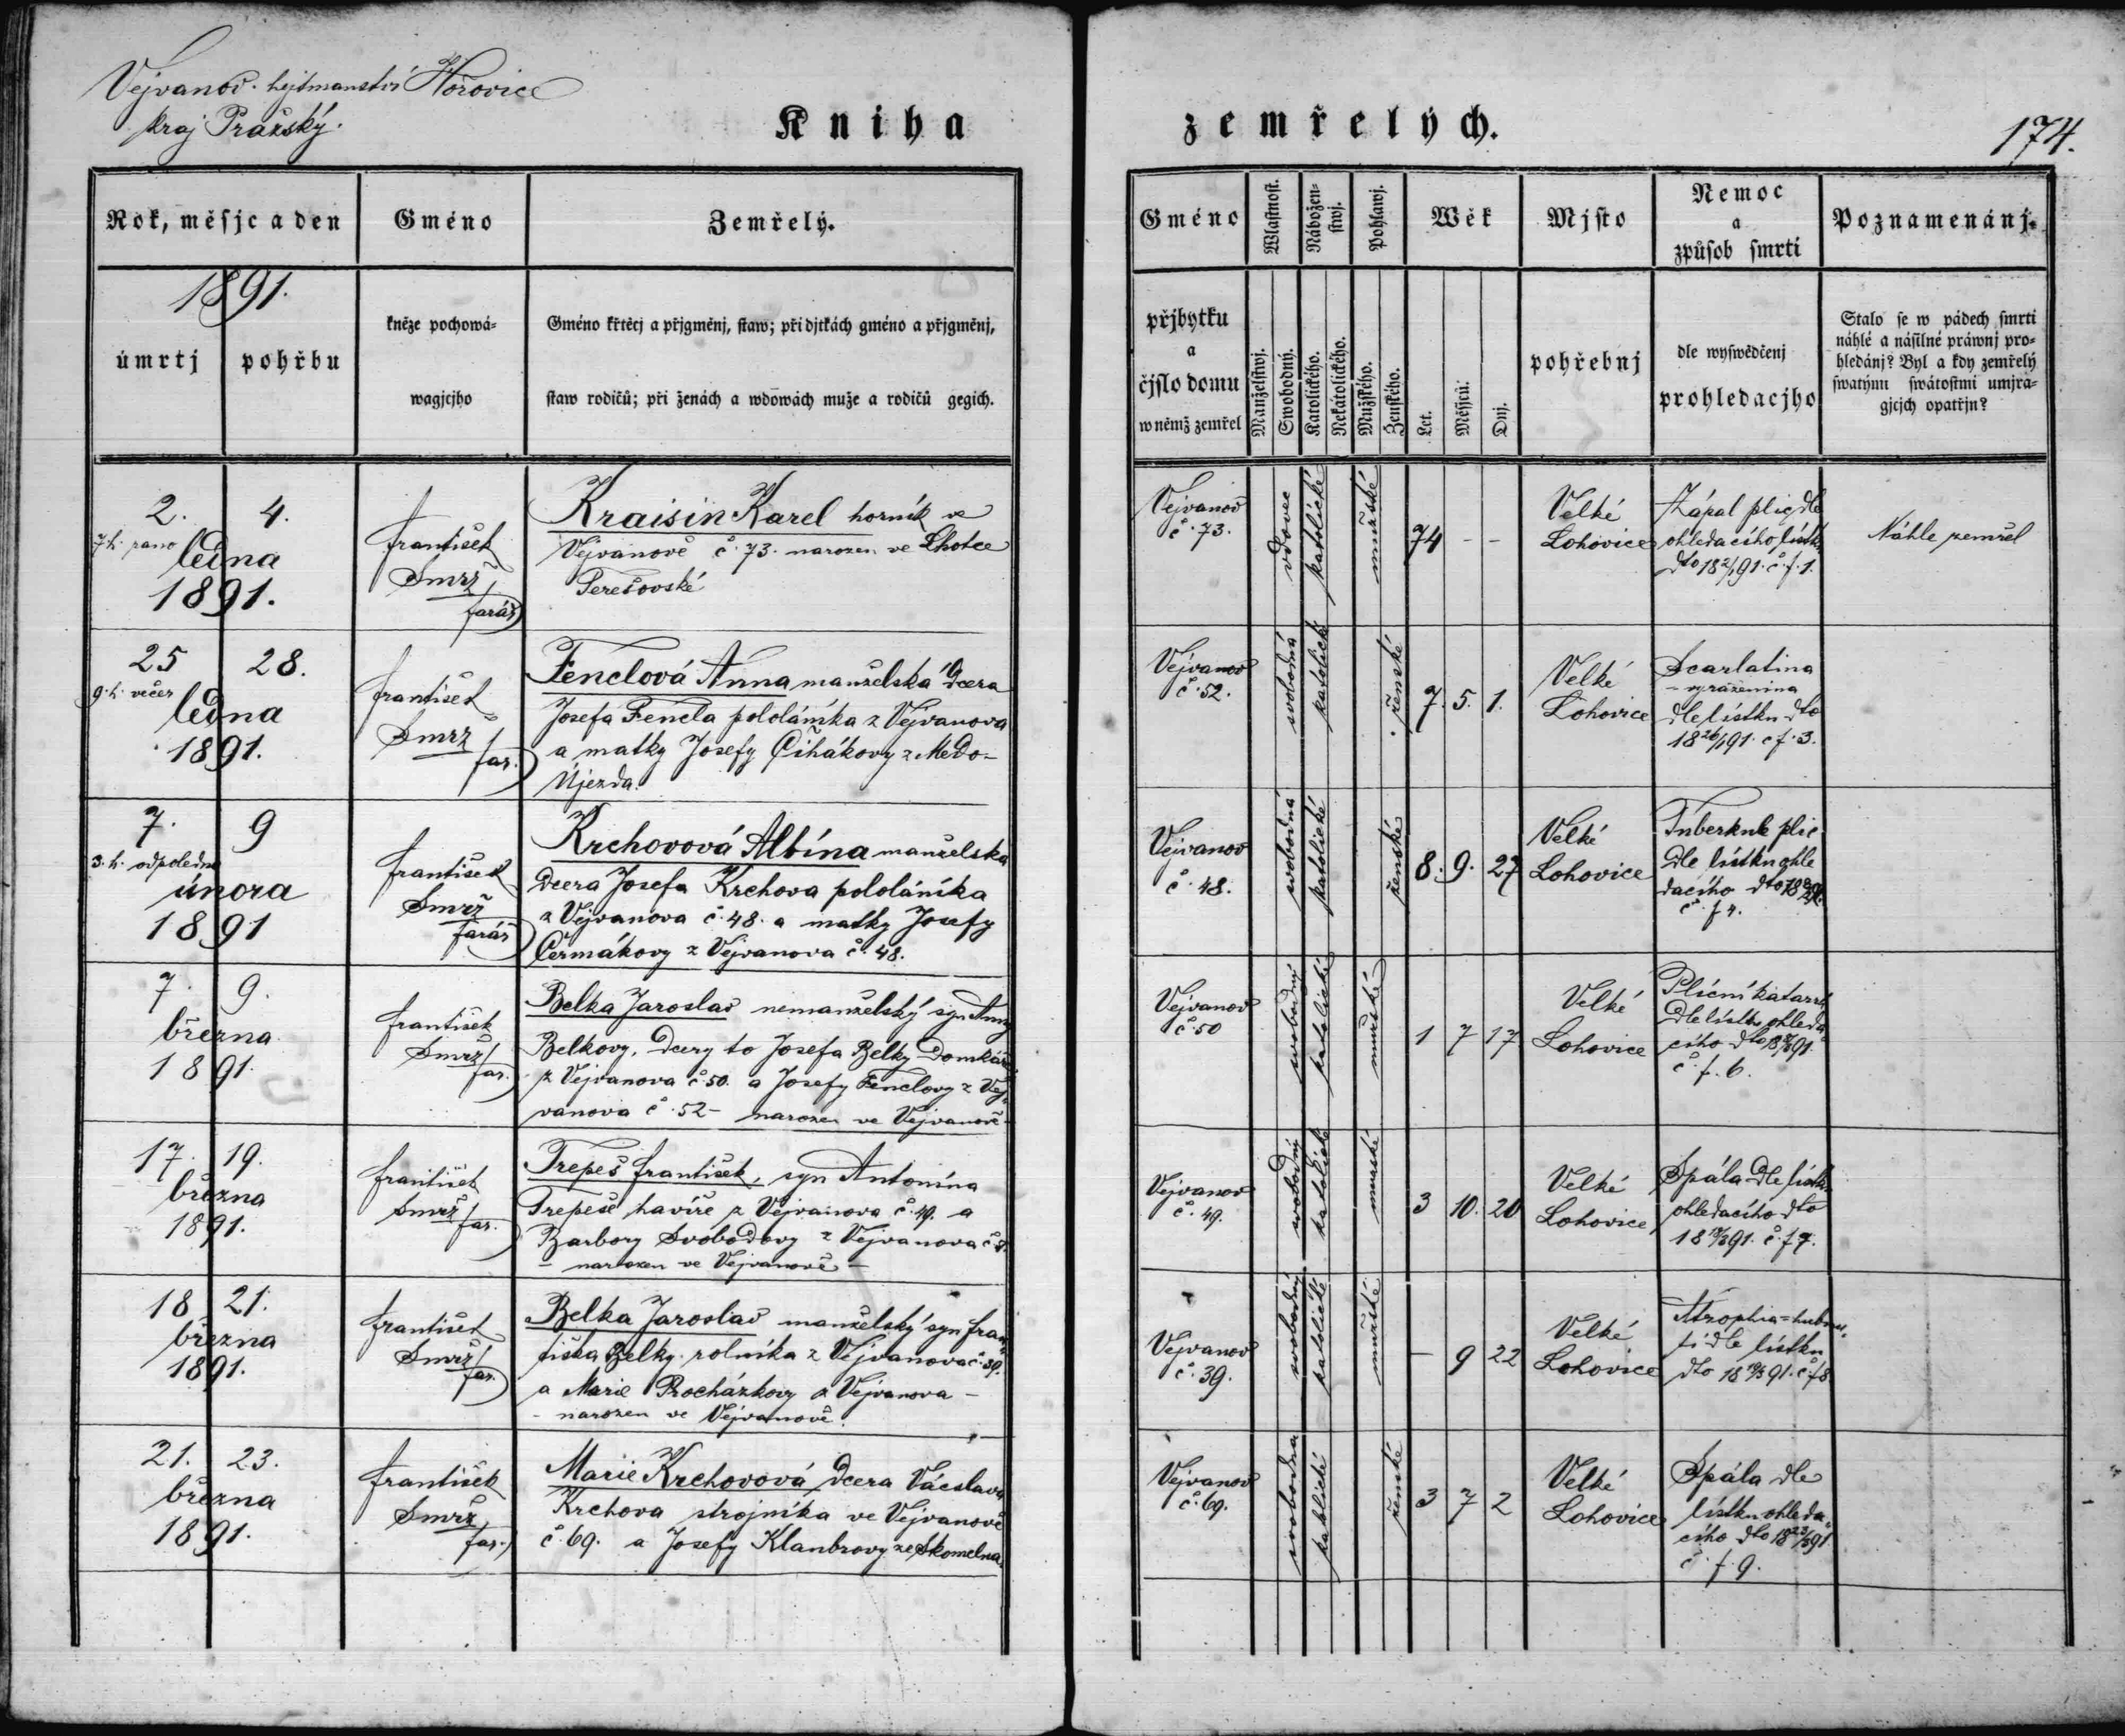 Vejvanov. hejtmanství Hořovice
kraj Pražský.
Kniha
zemřelých.
174.
Rok, měsjc a den
Gméno
Zemřelý.
1891.
úmrtj
pohřbu
kněze pochowá-
wagjcjho
Gméno křtěcj a přjgměnj, staw; při djtkách gméno a přjgměnj,
staw rodičů; při ženách a wdowách muže a rodičů gegich.
Gméno
přjbytku
a
čjslo domu
w němž zemřel
Wlastnost.
Manželstwj.
Swobodný.
Nábožen-
stwj.
Katolického.
Nekátolického.
Pohlawj.
Mužského.
Ženského.
Wěk
Let.
Měsjců.
Dnj.
Mjsto
pohřebnj
Nemoc
a
způsob smrti
dle wyswědčenj
prohledacjho
Poznamenánj.
Stalo se w pádech smrti
náhlé a násilné práwnj pro-
hledánj? Byl a kdy zemřelý
swatými swátostmi umjra-
gjcjch opatřjn?
2. 4.
7 h. rano
ledna
1891.
František
Smrž
farář
Kraisin Karel horník ve
Vejvanově č. 73. narozen ve Lhotce
Terešovské
Vejvanov
č. 73.
vdovec
katolické
mužské
74 - -
Velké
Lohovice
Zápal plic dle
ohledacího lístku
dto 18 2/1 91. č. f. 1.
Náhle zemřel
25 28.
9. h. večer
ledna
1891.
František
Smrž
far.
Fenclová Anna manželská dcera
Josefa Fencla pololáníka z Vejvanova
a matky Josefy Čihákovy z Medo-
Újezda.
Vejvanov
č. 52.
svobodná
katolické
ženské
7. 5. 1.
Velké
Lohovice
Scarlatina
- vyraženina
dle lístku dto
18 26/1 91. č f. 3.
7. 9
3. h. odpoledne
února
1891
František
Smrž
farář
Krchovová Albína manželská
dcera Josefa Krchova pololáníka
z Vejvanova č. 48. a matky Josefy
Čermákovy z Vejvanova č. 48.
Vejvanov
č. 48.
svobodná
katolické
ženské
8. 9. 27
Velké
Lohovice
Tuberkule plic
dle lístku ohle
dacího dto
č. f 4.
7. 9.
března
1891.
František
Smrž
far.
Belka Jaroslav nemanželský syn Anny
Belkovy, dcery to Josefa Belky domkáře
z Vejvanova č. 50. a Josefy Fenclovy z Vej-
vanova č. 52 - narozen ve Vejvanově -
Vejvanov
č. 50
svobodný
katolické
mužské
1 7 17
Velké
Lohovice
Plicní katarrh
dle lístku ohleda
cího dto 91.
č. f. 6.
17. 19.
března
1891.
František
Smrž
far.
Trepeš František, syn Antonína
Trepeše havíře z Vejvanova č. 49. a
Barbory Svobodovy z Vejvanova
- narozen ve Vejvanově -
Vejvanov
č. 49.
svobodný
katolické
mužské
3 10. 20
Velké
Lohovice
Spála dle lístku
ohledacího dto
91. č. f 7.
18 21.
března
1891.
František
Smrž
far.
Belka Jaroslav manželský syn Fran-
tiška Belky rolníka z Vejvanova č. 39.
a Marie Procházkovy z Vejvanova -
- narozen ve Vejvanově.
Vejvanov
č. 39.
svobodný
katolické
mužské
- 9 22
Velké
Lohovice
Atrophia =
ti dle lístku
dto 18 19/3 91. č. f 8
21. 23.
března
1891.
František
Smrž
far.
Marie Krchovová dcera Václava
Krchova strojníka ve Vejvanově
č. 69. a Josefy Klanbrovy ze Skomelna.
Vejvanov
č. 69.
svobodna
katolické
ženské
3 7 2
Velké
Lohovice
Spála dle
lístku ohleda-
cího dto 18 23/3 91
č. f. 9.